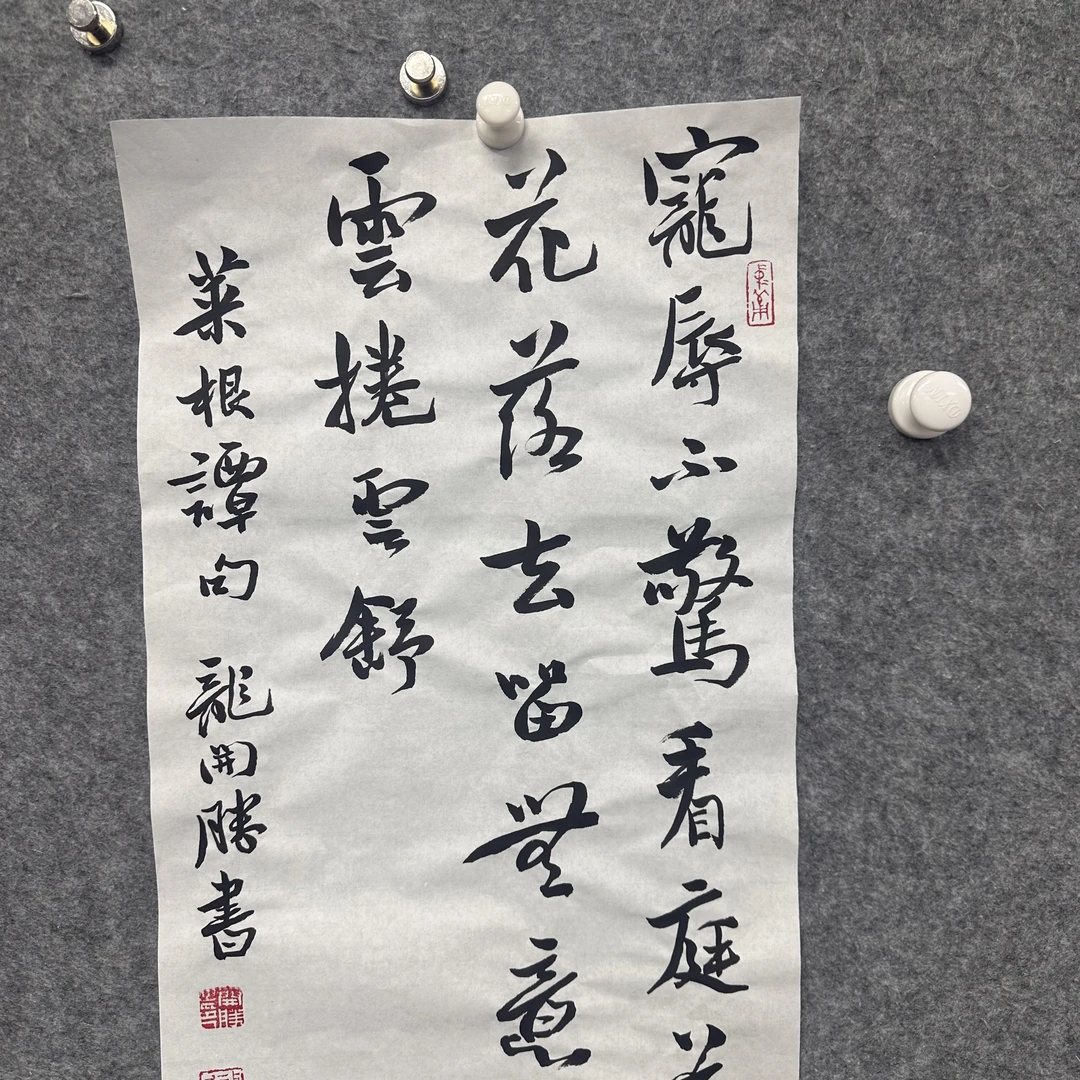 寵辱不驚看庭
花落去留無意
雲捲雲舒
菜根譚句 龍開勝書
開勝